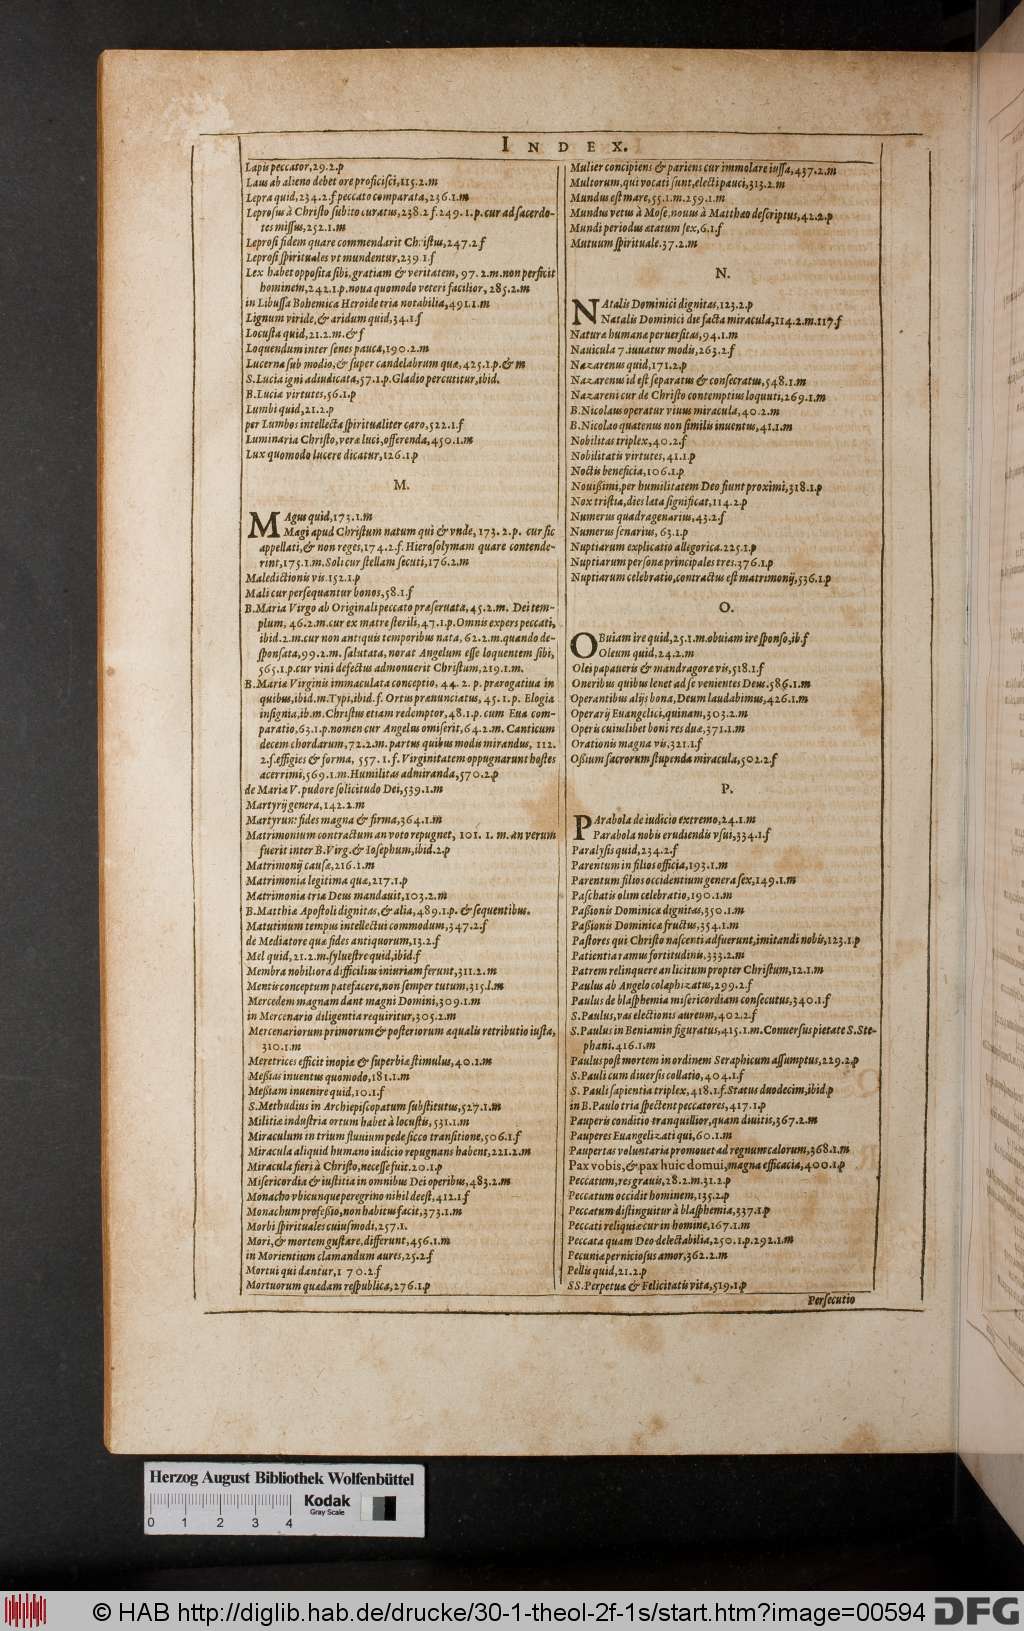 INDEX.
Lapis peccator,29.2.p
Laus ab alieno debet ore proficisci,115.2.m
Lepra quid,234.2.f peccato comparata,236.1.m
Leprosus à Christo subito curatus,238.2 f.249.1.p.cur ad sacerdo-
tes missus,252.1.m
Leprosi fidem quare commendarit Christus,247.2.f
Leprosi spirituales vt mundentur,239 1.f
Lex habet opposita sibi,gratiam & veritatem, 97. 2.m.non perficit
hominem,242.1.p.noua quomodo veteri facilior, 285.2.m
in Libussa Bohemica Heroide tria notabilia,491.1.m
Lignum viride,& aridum quid,34.1.f
Locusta quid,21.2.m.& f
Loquendum inter senes pauca,190.2.m
Lucerna sub modio,& super candelabrum quæ,425.1.p.& m
S.Lucia igni adiudicata,57.1.p.Gladio percutitur,ibid.
B.Luciæ virtutes,56.1.p
Lumbi quid,21.2.p
per Lumbos intellecta spiritualiter caro,522.1.f
Luminaria Christo,veræ luci,offerenda,450.1.m
Lux quomodo lucere dicatur,126.1.p
M.
MAgus quid,173.1.m
Magi apud Christum natum qui & vnde, 173.2.p. cur sic
appellati,& non reges,174.2.f.Hierosolymam quare contende-
rint,175.1.m.Soli cur stellam secuti,176.2.m
Maledictionis vis.152.1.p
Mali cur persequantur bonos,58.1.f
B.Maria Virgo ab Originali peccato præseruata,45.2.m. Dei tem-
plum, 46.2.m.cur ex matre sterili,47.1.p.Omnis expers peccati,
ibid.2.m.cur non antiquis temporibus nata, 62.2.m.quando de-
sponsata,99.2.m. salutata, norat Angelum esse loquentem sibi,
565.1.p.cur vini defectus admonuerit Christum,219.1.m.
B.Mariæ Virginis immaculata conceptio, 44. 2. p. prærogatiua in
quibus,ibid.m.Typi,ibid.f. Ortus prænunciatus, 45.1.p. Elogia
insignia,ib.m.Christus etiam redemptor,48.1.p. cum Eua com-
paratio,63.1.p.nomen cur Angelus omiserit,64.2.m. Canticum
decem chordarum,72.2.m. partus quibus modis mirandus, 112.
2.f.effigies & forma, 557.1.f. Virginitatem oppugnarunt hostes
acerrimi,569.1.m.Humilitas admiranda,570.2.p
de Mariæ V.pudore solicitudo Dei,539.1.m
Martyrij genera,142.2.m
Martyrum fides magna & firma,364.1.m
Matrimonium contractum an voto repugnet, 101. 1. m.an verum
fuerit inter B.Virg.& Iosephum,ibid.2.p
Matrimonij causæ,216.1.m
Matrimonia legitima quæ,217.1.p
Matrimonia tria Deus mandauit,103.2.m
B.Matthiæ Apostoli dignitas,& alia,489.1.p. & sequentibus.
Matutinum tempus intellectui commodum,347.2.f
de Mediatore quæ fides antiquorum,13.2.f
Mel quid,21.2.m.syluestre quid,ibid.f
Membra nobiliora difficilius iniuriam ferunt,311.2.m
Mentis conceptum patefacere,non semper tutum,315.1.m
Mercedem magnam dant magni Domini,309.1.m
in Mercenario diligentia requiritur,305.2.m
Mercenariorum primorum & posteriorum æqualis retributio iusta,
310.1.m
Meretrices efficit inopiæ & superbiæ stimulus,40.1.m
Messias inuentus quomodo,181.1.m
Messiam inuenire quid,10.1.f
S.Methudius in Archiepiscopatum substitutus,527.1.m
Militiæ industria ortum habet à locustis, 531.1.m
Miraculum in trium fluuium pede sicco transitione,506.1.f
Miracula aliquid humano iudicio repugnans habent,221.2.m
Miracula fieri à Christo,necesse fuit.20.1.p
Misericordia & iustitia in omnibus Dei operibus,483.2.m
Monacho vbicunque peregrino nihil deest,412.1.f
Monachum professio,non habitus facit,373.1.m
Morbi spirituales cuiusmodi,257.1.
Mori,& mortem gustare,differunt,456.1.m
in Morientium clamandum aures,25.2.f
Mortui qui dantur,170.2.f
Mortuorum quædam respublica,276.1.p
Mulier concipiens & pariens cur immolare iussa,437.2.m
Multorum,qui vocati sunt,electi pauci,313.2.m
Mundus est mare,55.1.m.259.1.m
Mundus vetus à Mose,nouus à Matthæo descriptus,42.2.p
Mundi periodus ætatum sex,6.1.f
Mutuum spirituale.37.2.m
N.
NAtalis Dominici dignitas,123.2.p
Natalis Dominici die facta miracula,114.2.m.117.f
Naturæ humanæ peruersitas,94.1.m
Nauicula 7.iuuatur modis,263.2.f
Nazarenus quid,171.2.p
Nazarenus id est separatus & consecratus,548.1.m
Nazareni cur de Christo contemptius loquuti,269.1.m
B.Nicolaus operatur viuus miracula,40.2.m
B.Nicolao quatenus non similis inuentus,41.1.m
Nobilitas triplex,40.2.f
Nobilitatis virtutes,41.1.p
Noctis beneficia,106.1.p
Nouissimi,per humilitatem Deo fiunt proximi,318.1.p
Nox tristia,dies læta significat,114.2.p
Numerus quadragenarius,43.2.f
Numerus senarius, 63.1.p
Nuptiarum explicatio allegorica.225.1.p
Nuptiarum personæ principales tres.376.1.p
Nuptiarum celebratio,contractus est matrimonij,536.1.p
O.
OBuiam ire quid,25.1.m.obuiam ire sponso,ib.f
Oleum quid,24.2.m
Olei papaueris & mandragoræ vis,518.1.f
Oneribus quibus lenet ad se venientes Deus.586.1.m
Operantibus alijs bona,Deum laudabimus,426.1.m
Operarij Euangelici,quinam,303.2.m
Operis cuiuslibet boni res duæ,371.1.m
Orationis magna vis,321.1.f
Ossium sacrorum stupenda miracula,502.2.f
P.
PArabola de iudicio extremo,24.1.m
Parabola nobis erudiendis vsui,334.1.f
Paralysis quid,234.2.f
Parentum in filios officia,193.1.m
Parentum filios occidentium genera sex,149.1.m
Paschatis olim celebratio,190.1.m
Passionis Dominicæ dignitas,350.1.m
Passionis Dominicæ fructus,354.1.m
Pastores qui Christo nascenti adfuerunt,imitandi nobis,123.1.p
Patientia ramus fortitudinis,333.2.m
Patrem relinquere an licitum propter Christum,12.1.m
Paulus ab Angelo colaphizatus,299.2.f
Paulus de blasphemia misericordiam consecutus,340.1.f
S.Paulus,vas electionis aureum,402.2.f
S.Paulus in Beniamin figuratus,415.1.m.Conuersus pietate S.Ste-
phani.416.1.m
Paulus post mortem in ordinem Seraphicum assumptus,229.2.p
S.Pauli cum diuersis collatio,404.1.f
S. Pauli sapientia triplex,418.1.f.Status duodecim,ibid.p
in B.Paulo tria spectent peccatores,417.1.p
Pauperis conditio tranquillior,quam diuitis,367.2.m
Pauperes Euangelizati qui,60.1.m
Paupertas voluntaria promouet ad regnum cælorum,368.1.m
Pax vobis,& pax huic domui,magna efficacia,400.1.p
Peccatum,res grauis,28.2.m.31.2.p
Peccatum occidit hominem,135.2.p
Peccatum distinguitur à blasphemia,337.1.p
Peccati reliquiæ cur in homine,167.1.m
Peccata quam Deo delectabilia,250.1.p.292.1.m
Pecuniæ perniciosus amor,362.2.m
Pellis quid,21.2.p
SS.Perpetuæ & Felicitatis vita,519.1.p
Persecutio
Herzog August Bibliothek Wolfenbüttel
0 1 2 3 4
Kodak
Gray Scale
© HAB http://diglib.hab.de/drucke/30-1-theol-2f-1s/start.htm?image=00594
DFG